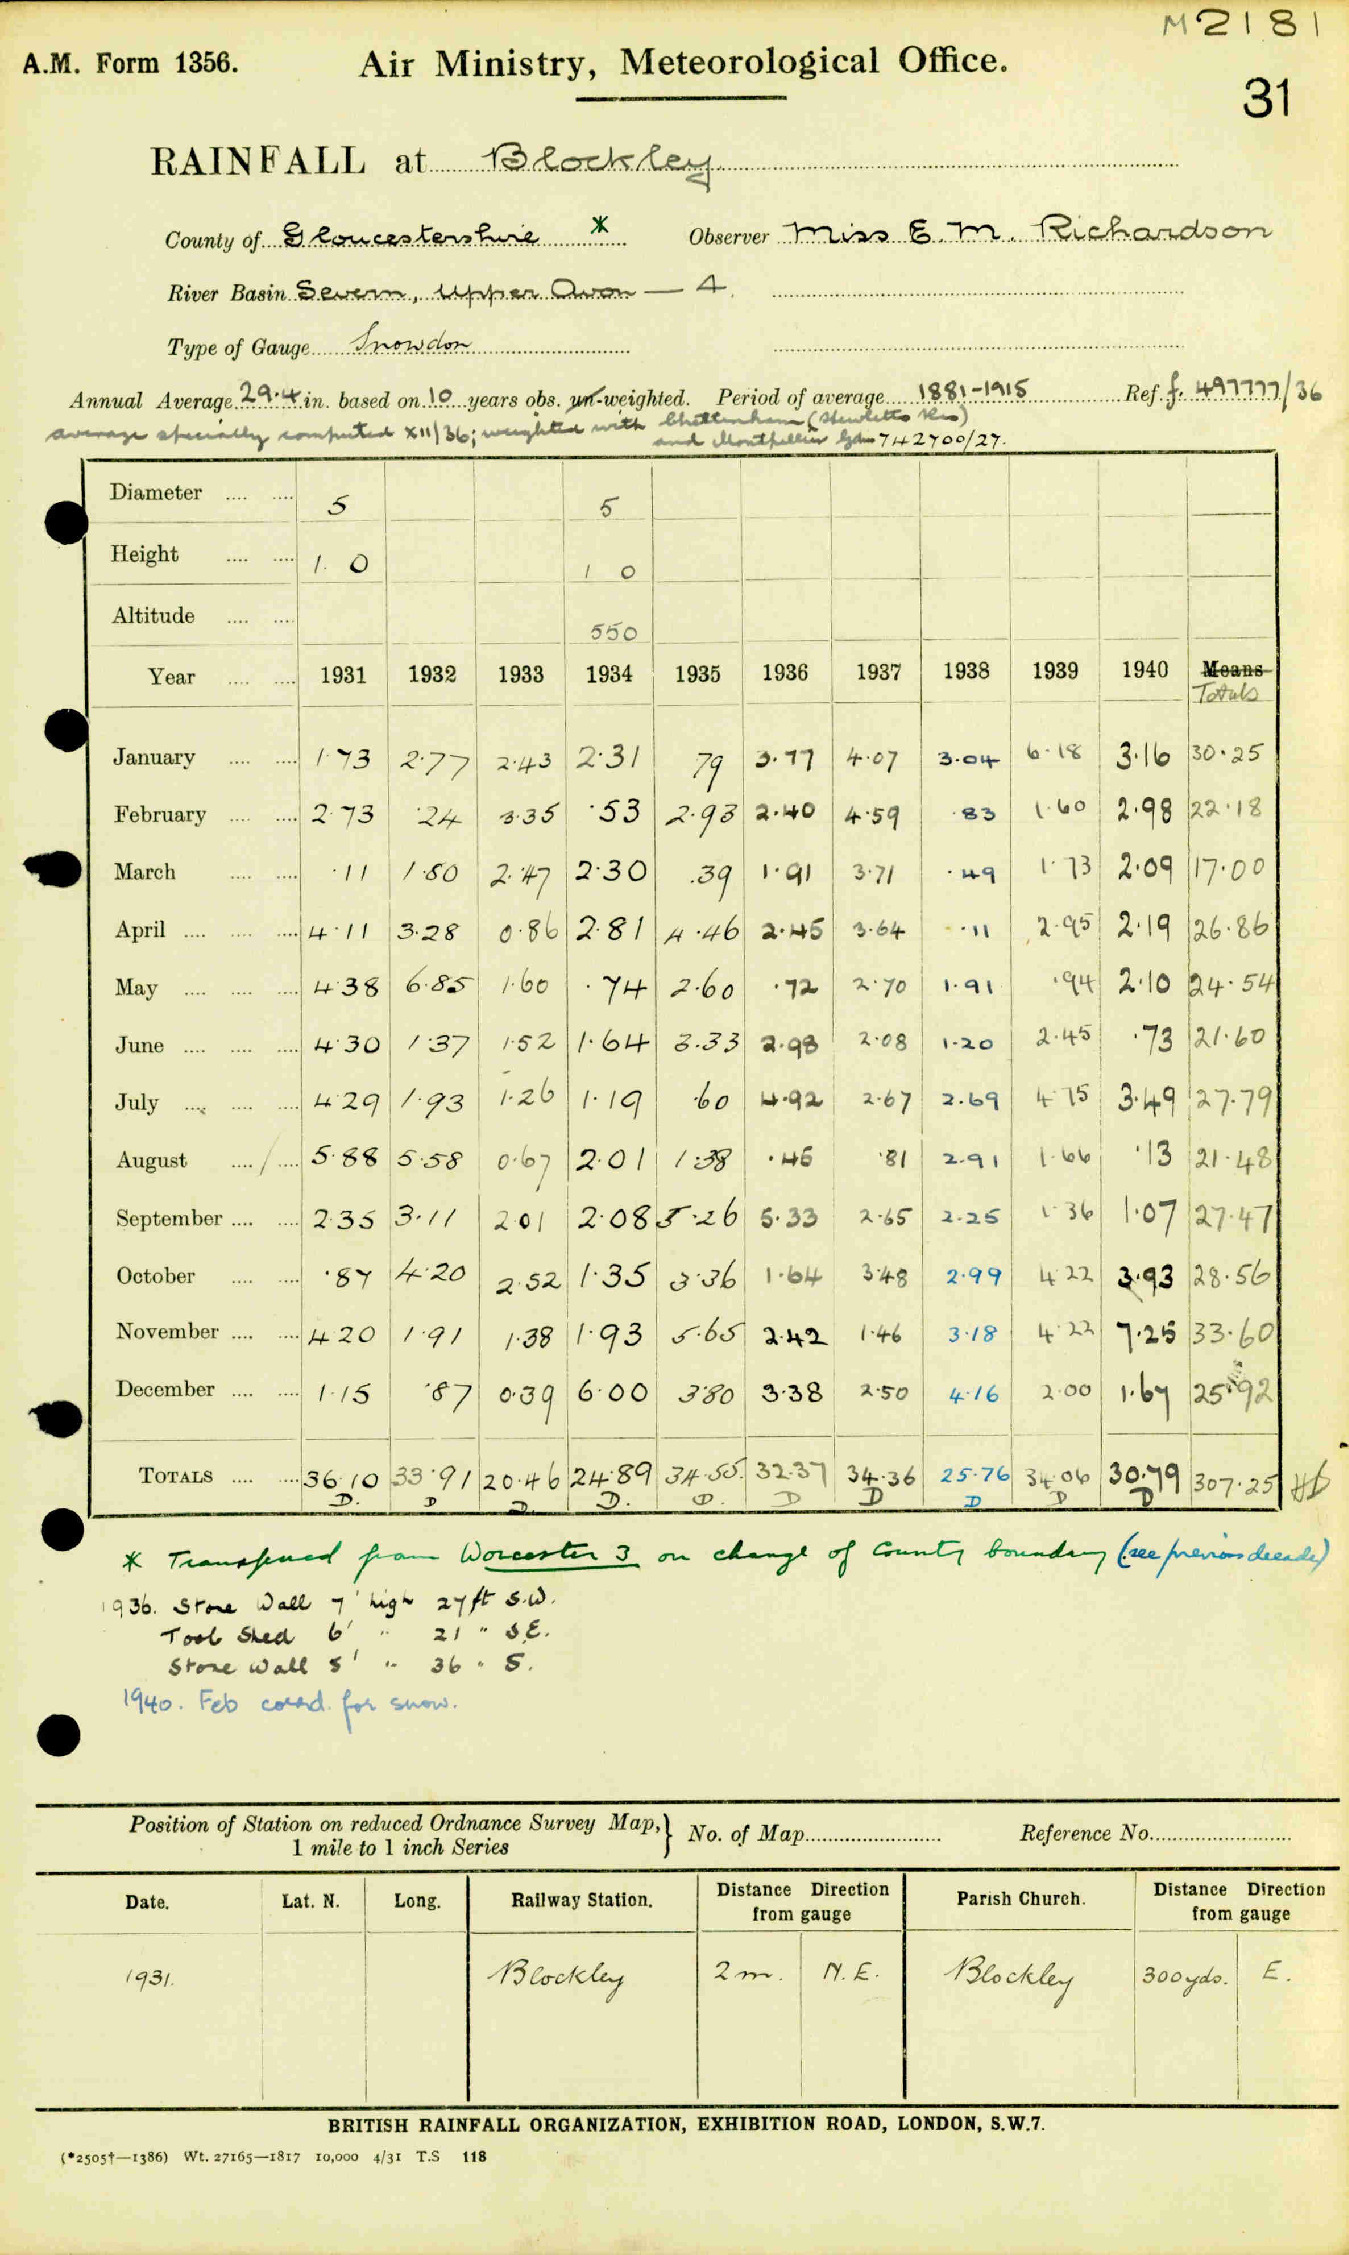 M2181
A.M. Form 1356. Air Ministry, Meteorological Office.
31
RAINFALL at Blockley
County of Gloucestershire * Observer Miss E. M. Richardson
River Basin Severn, Upper Avon — 4.
Type of Gauge Snowdon
Annual Average 29.4 in. based on 10 years obs. un-weighted. Period of average 1881-1915 Ref. f. 497777/36
average specially computed XII/36; weighted with Cheltenham (Hewletts Res)
and Montpellier Gdn 742700/27.
Diameter 5 5
Height 1. 0 1 0
Altitude 550
Year 1931 1932 1933 1934 1935 1936 1937 1938 1939 1940 Means
Totals
January 1.73 2.77 2.43 2.31 79 3.77 4.07 3.04 6.18 3.16 30.25
February 2.73 .24 3.35 .53 2.93 2.40 4.59 .83 1.60 2.98 22.18
March .11 1.80 2.47 2.30 .39 1.91 3.71 .49 1.73 2.09 17.00
April 4.11 3.28 0.86 2.81 4.46 2.45 3.64 .11 2.95 2.19 26.86
May 4.38 6.85 1.60 .74 2.60 .72 2.70 1.91 .94 2.10 24.54
June 4.30 1.37 1.52 1.64 3.33 2.98 2.08 1.20 2.45 .73 21.60
July 4.29 1.93 1.26 1.19 .60 4.92 2.67 2.69 4.75 3.49 27.79
August 5.88 5.58 0.67 2.01 1.38 .45 .81 2.91 1.66 .13 21.48
September 2.35 3.11 2.01 2.08 5.26 5.33 2.65 2.25 1.36 1.07 27.47
October .87 4.20 2.52 1.35 3.36 1.64 3.48 2.99 4.22 3.93 28.56
November 4.20 1.91 1.38 1.93 5.65 2.42 1.46 3.18 4.22 7.25 33.60
December 1.15 .87 0.39 6.00 3.80 3.38 2.50 4.16 2.00 1.67 25.92
TOTALS 36.10 33.91 20.46 24.89 34.55 32.37 34.36 25.76 34.06 30.79 307.25
D. D D D. D. D D D D D
* Transferred from Worcester 3 on change of County boundary (see previous decade)
1936. Stone Wall 7' high 27 ft S.W.
Tool Shed 6' " 21 " S.E.
Stone Wall 5' " 36 " S.
1940. Feb corrd. for snow.
Position of Station on reduced Ordnance Survey Map, } No. of Map Reference No.
1 mile to 1 inch Series
Date. Lat. N. Long. Railway Station. Distance Direction from gauge Parish Church. Distance Direction from gauge
1931. Blockley 2 m. N.E. Blockley 300 yds. E.
BRITISH RAINFALL ORGANIZATION, EXHIBITION ROAD, LONDON, S.W.7.
(*2505†—1386) Wt. 27165—1817 10,000 4/31 T.S 118